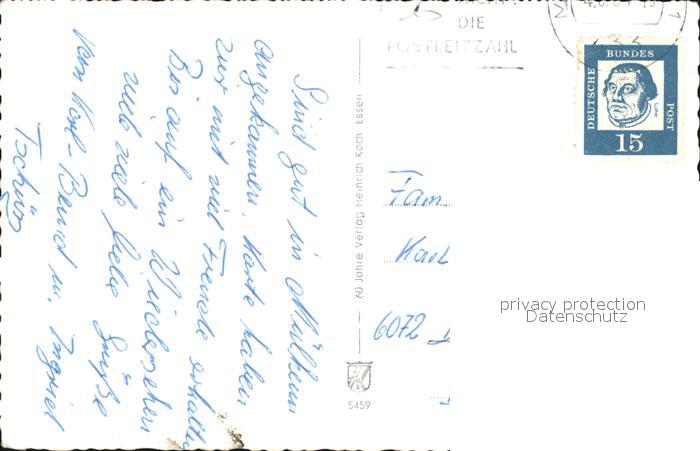 Sind gut in Mülheim
angekommen. Karte haben
wir mit viel Freude erhalten
Bis auf ein Wiedersehen
viele liebe Grüße
von Karl-Bernd u. Ingrid
Tschüß
60 Jahre Verlag Heinrich Koch Essen
5459
DIE
POSTLEITZAHL
DEUTSCHE
BUNDES
POST
15
Fam
Karl
6072
privacy protection
Datenschutz